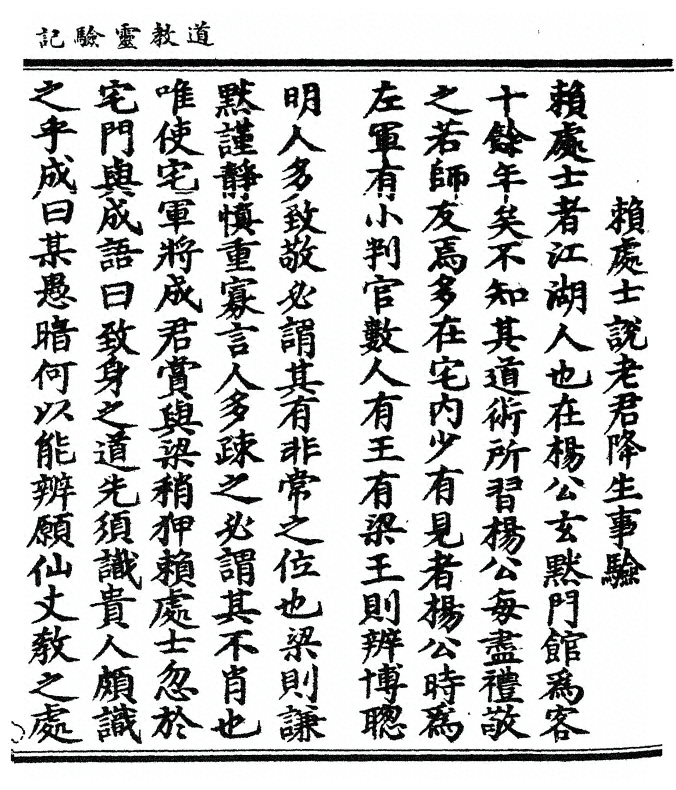 道教靈驗記
賴處士說老君降生事驗
賴處士者江湖人也在楊公玄默門館爲客
十餘年矣不知其道術所習楊公每盡禮敬
之若師友焉多在宅内少有見者楊公時爲
左軍有小判官數人有王有梁王則辨博聰
明人多致敬必謂其有非常之位也梁則謙
默謹靜慎重寡言人多疎之必謂其不肖也
唯使宅軍將成君賞與梁稍狎賴處士忽於
宅門與成語曰致身之道先須識貴人頗識
之乎成曰某愚暗何以能辨願仙丈教之處